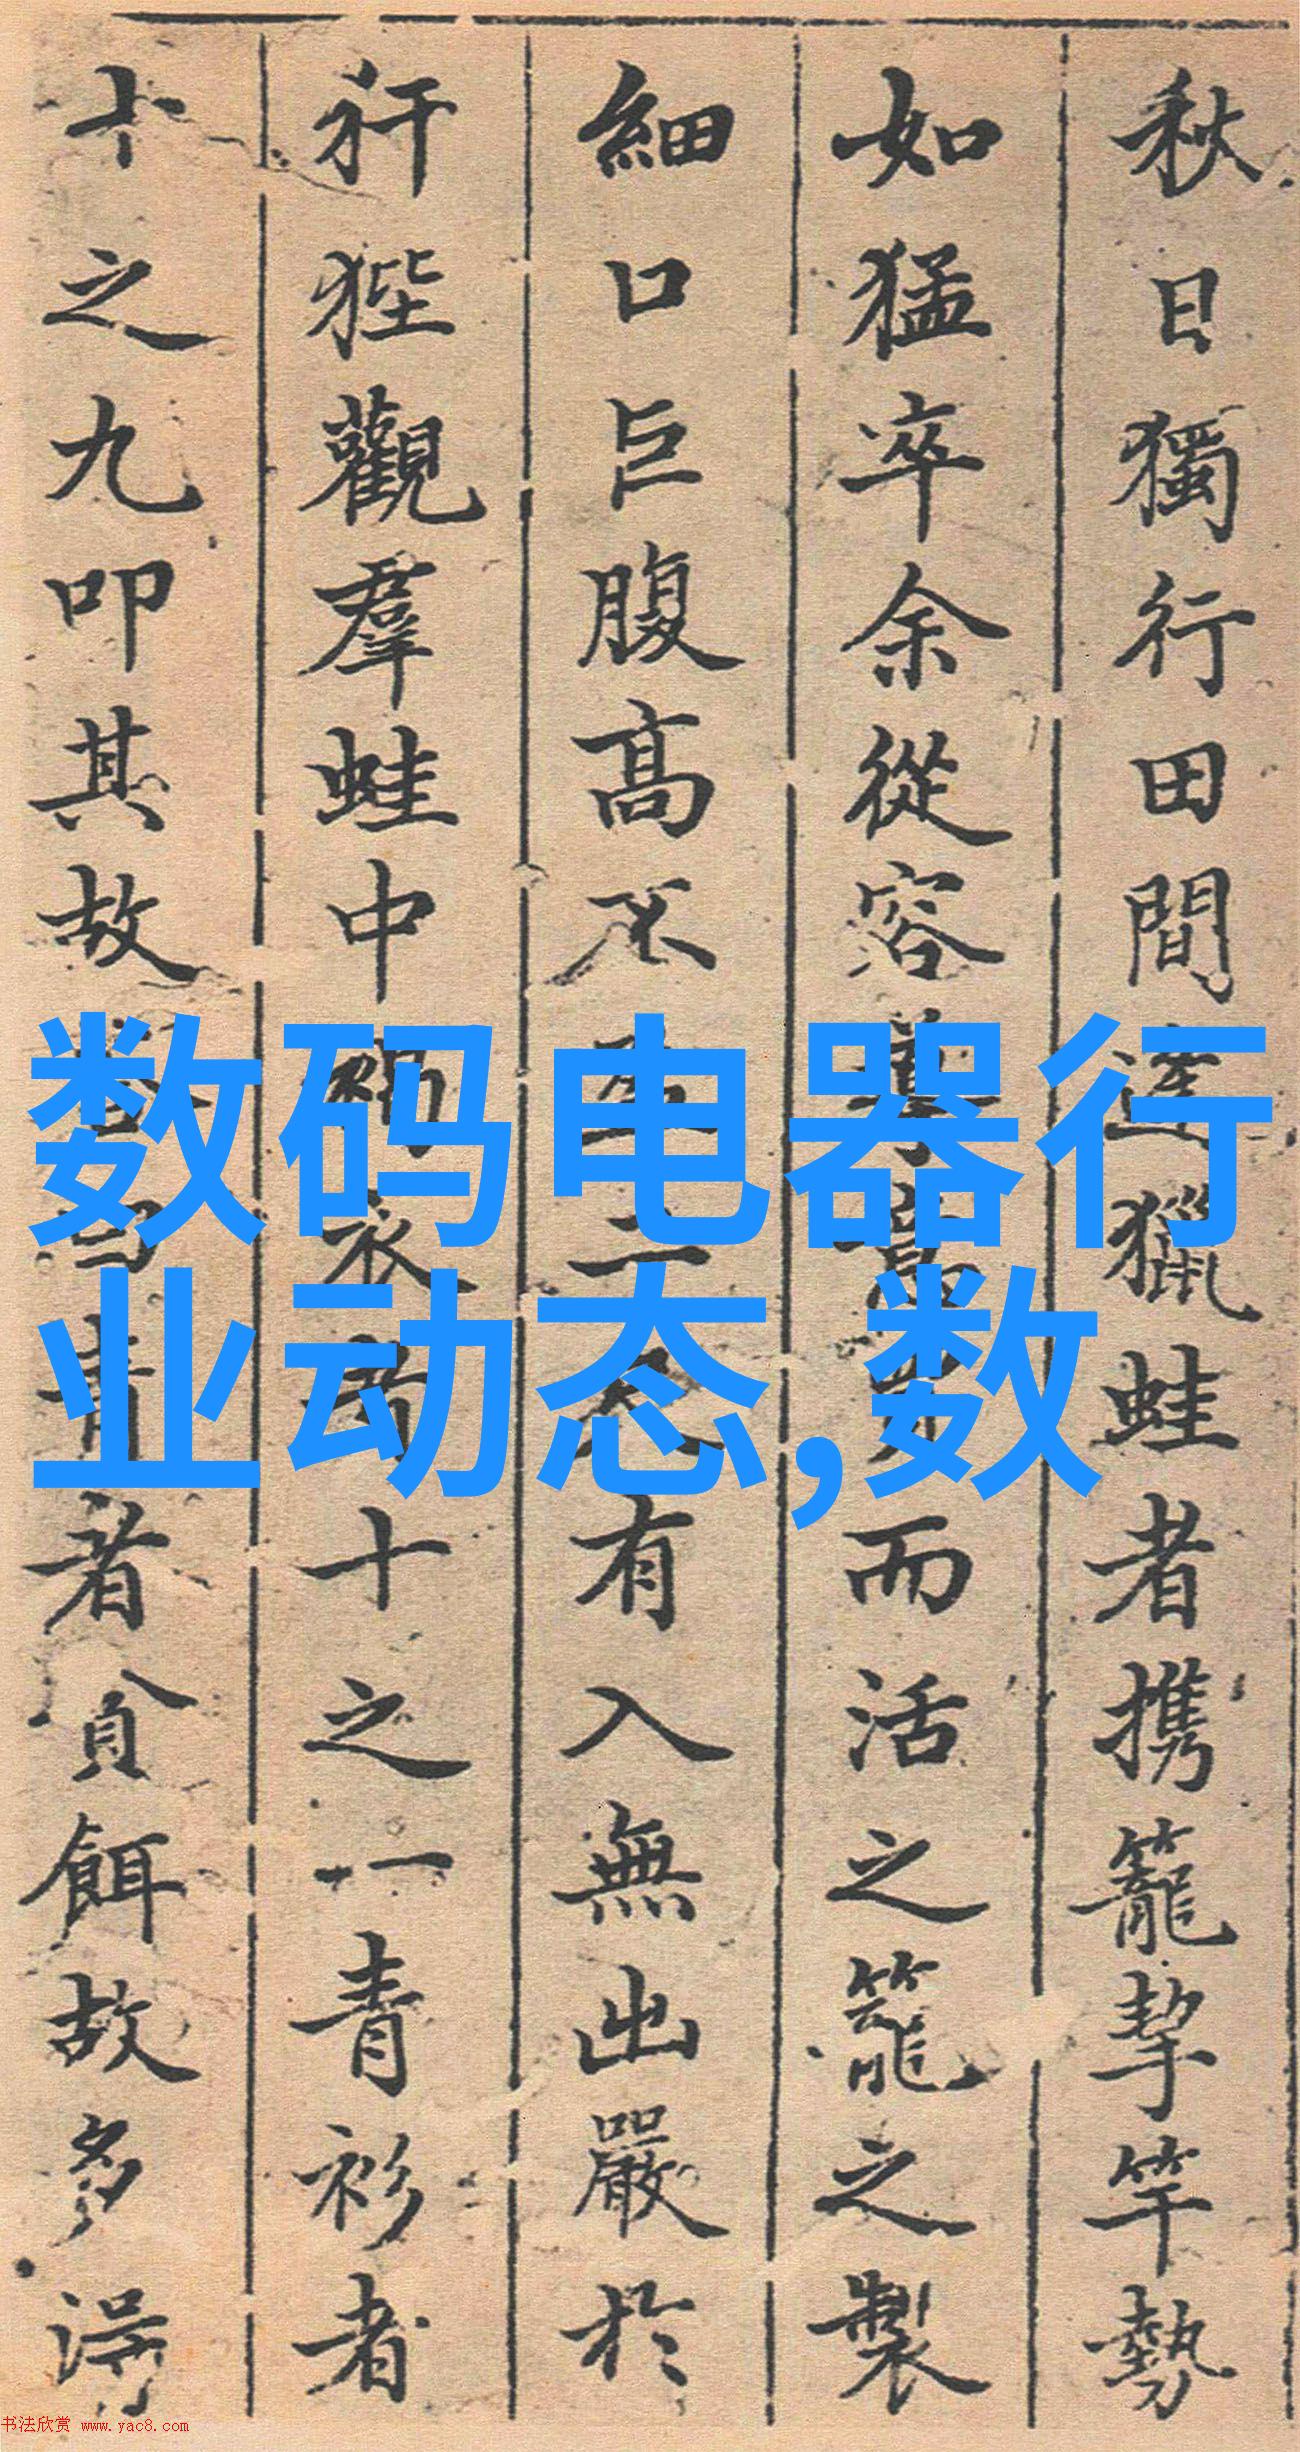 秋日獨行田間逢獵蛙者携籠挈竿勢
如猛卒余從容前而活之籠之製
細口巨腹高不二有入無出嚴於
犴狴觀羣蛙中衣者十之一青衫者
十之九叩其故青者貪餌故多得
数码电器行
业动态,数
书法欣赏 www.yac8.com